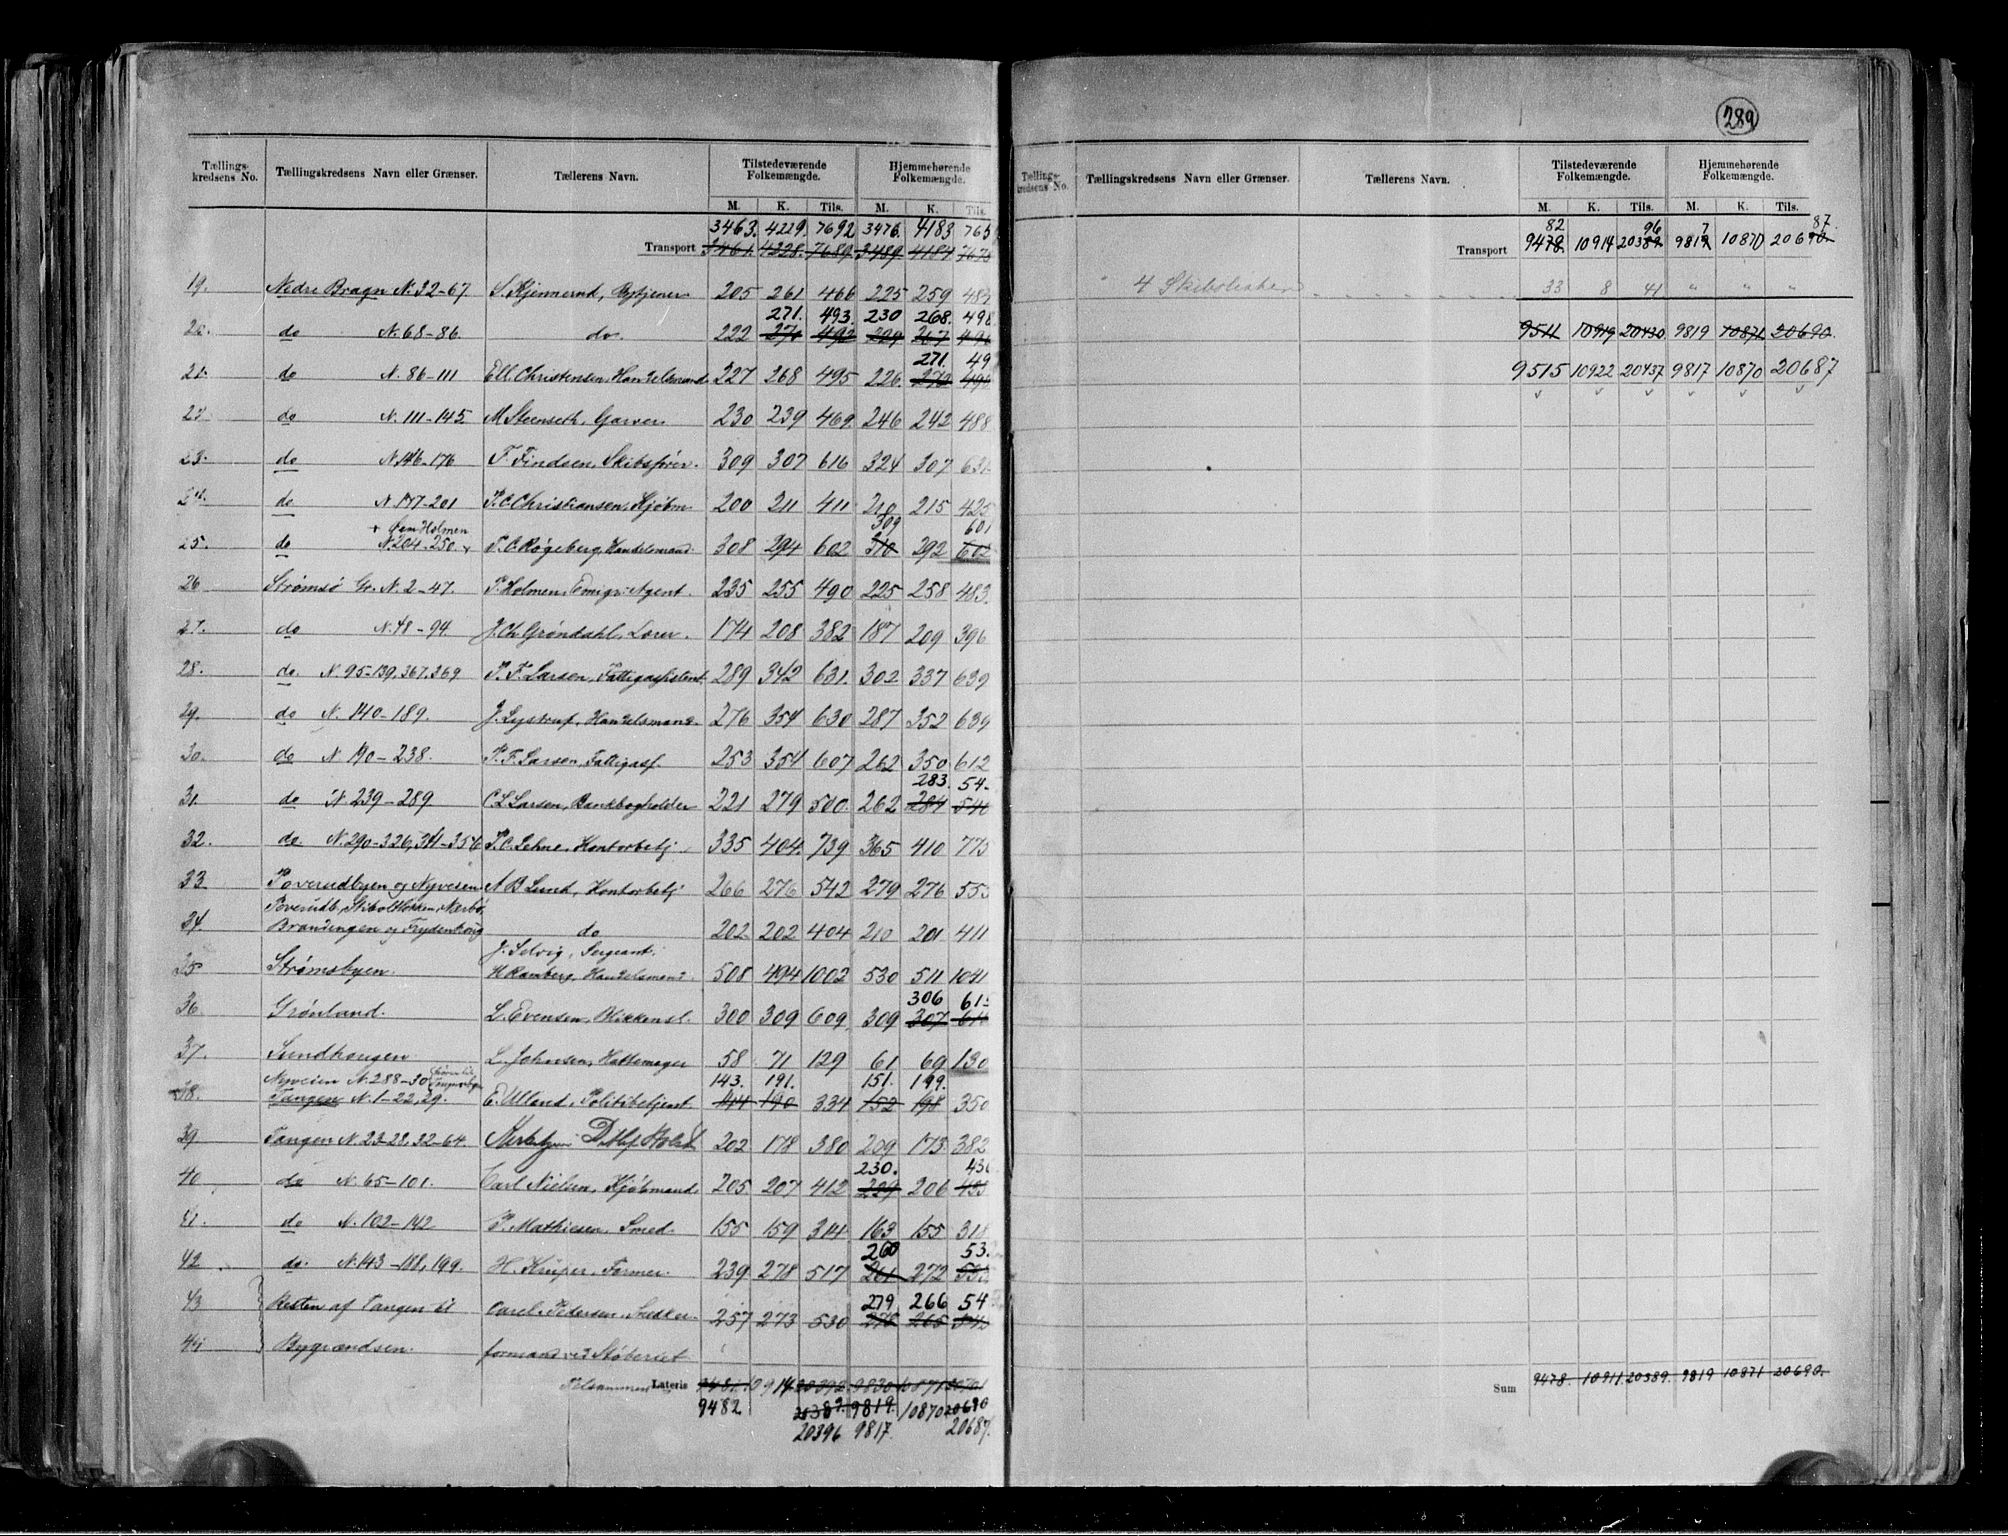 289
Tællings-kredsens No. Tællingskredsens Navn eller Grænser. Tællerens Navn. Tilstedeværende Folkemængde. Hjemmehørende Folkemængde.
M. K. Tils. M. K. Tils.
3463. 4229. 7692 3476. 4183 765
Transport 3461. 4228. 7689 3489. 4184 7673
19. Nedre Bragn N. 32-67. S. Kjennerud, Bytjener 205 261 466 225 259 484
271. 493. 230 268. 498
20. do N. 68-86 do. 222 270 492 229 267 496
271. 49
21. do N. 86-111 Ell. Christensen, Handelsmand 227 268 495 226. 272 498
22. do N. 111-145. M Steenseth, Garver 230 239 469. 246 242 488
23. do N. 146-176 F. Findsen, Skibsfører. 309 307 616 324 307 631
24. do N. 177-201 P. C. Christiansen, Kjøbm. 200 211 411 210 215 425
+ Øen Holmen 309 601
25. do N. 204-250 P. C. Røgeberg, Handelsmand. 308 294 602 310 292 602
26 Strømsø Gr. N. 2-47. P. Holmen, Emigr. Agent. 235 255 490 225 258 483.
27. do N. 48-94 J. Chr Grøndahl, Lærer. 174 208 382 187 209 396
28. do. N. 95-139, 367, 369 P. F. Larsen, Fattigassistent. 289 342 631. 302 337 639
29. do N. 140-189. J. Lystrup, Handelsmand. 276 354 630 287 352 639
30. do N. 190-238. P. F. Larsen, Fattigass. 253 354 607 262 350 612
283. 54
31. do N. 239-289 C. L. Larsen, Bankbogholder 221 279 500. 262 284 546
32. do N. 290-326, 341-356 P. C. Lehne, Kontorbetj 335 404. 739 365 410 775
33 Poverudbyen og Nyveien A B Lund, Kontorbetj 266 276 542 279 276 555
Poverudb, Stiboltløkken, Nærbø,
34. Brandengen og Frydenhaug do 202 202 404 210 201 411
J. Selvig, Sergeant.
35 Strømsbyen. H Ramberg, Handelsmand. 508 494 1002 530 511 1041
306 615
36 Grønland. L. Evensen, Blikkensl. 300 309 609. 309 307 616
37. Sundhaugen L. Johnsen, Hattemager 58 71 129 61 69 130
Nyveien N. 288-30 143. 191. 151. 199.
38. Tangen N. 1-22, 29. E. Ulland, Politibetjent. 144 190 334 152 198 350
39 Tangen N. 23-28, 32-64. Ditlef Holst 202 178 380 209 173. 382
230. 436
40 do N. 65-101. Carl Nielsen, Kjøbmand, 205. 207 412 229 206 435
41. do N. 102-142 P. Mathiesen, Smed. 155 159 314. 163 155 318
260 53
42 do. N. 143-188, 199. H. Kniper, Former. 239 278 517 261 272 533
279. 266 54
43 Resten af Tangen til Carel. Pedersen, Snedker- 257 273 530 278 265 543
44 Bygrændsen. formand ved Støberiet
Tilsammen Lateris 9481. 10914 20392. 9830 10871 20701
9482 20389. 9819. 10870 20690
20396 9817. 20687.
Tællings-kredsens No. Tællingskredsens Navn eller Grænser. Tællerens Navn. Tilstedeværende Folkemængde. Hjemmehørende Folkemængde.
M. K. Tils. M. K. Tils.
82 96 7 87.
Transport 9478 10914 20389 9819 10870 20690
" 4 Skibslister 33 8 41 " " "
9511 10919 20430 9819 10871 20690
9515 10922 20437 9817 10870 20687
Sum 9478. 10911 20389. 9819 10871 20690.